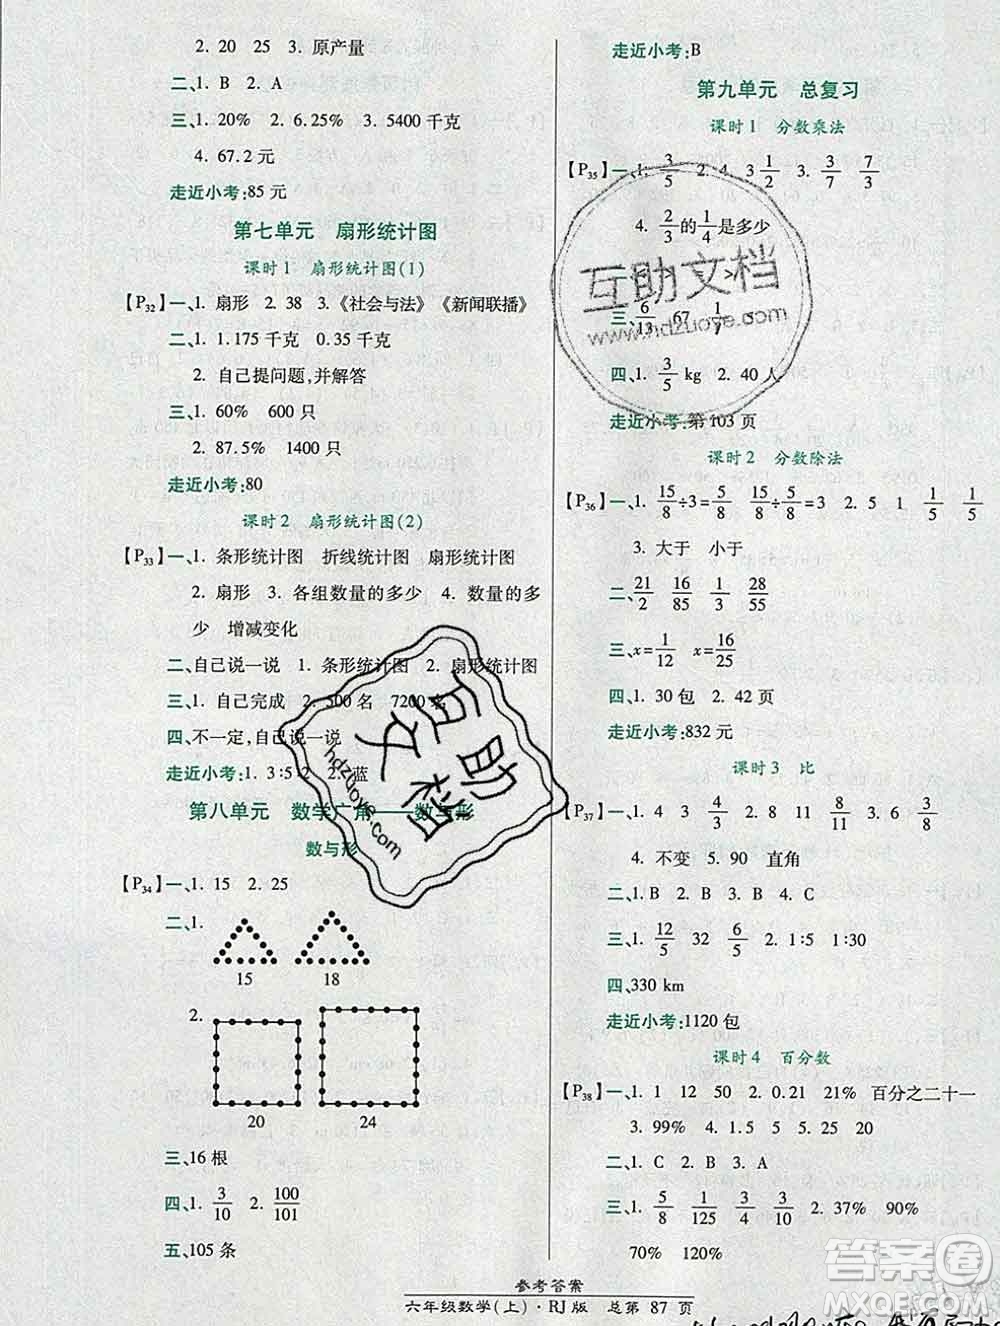 2. 20 25 3. 原产量
二、1. B 2. A
三、1. 20% 2. 6.25% 3. 5400 千克
4. 67.2 元
走近小考:85 元
第七单元 扇形统计图
课时1 扇形统计图(1)
【P32】一、1. 扇形 2. 38 3.《社会与法》《新闻联播》
二、1. 1.175 千克 0.35 千克
2. 自己提问题,并解答
三、1. 60% 600 只
2. 87.5% 1400 只
走近小考:80
课时2 扇形统计图(2)
【P33】一、1. 条形统计图 折线统计图 扇形统计图
2. 扇形 3. 各组数量的多少 4. 数量的多
少 增减变化
二、自己说一说 1. 条形统计图 2. 扇形统计图
三、1. 自己完成 2. 500 名 7200 名
四、不一定,自己说一说
走近小考:1. 3∶5∶2 2. 蓝
第八单元 数学广角——数与形
数与形
【P34】一、1. 15 2. 25
二、1.
15 18
2.
20 24
三、16 根
四、1. 3/10 2. 100/101
五、105 条
走近小考:B
第九单元 总复习
课时1 分数乘法
【P35】一、1. 3/5 2. 4 3 1/2 3. 3/7 7/3
4. 2/3的1/4是多少
三、6/13 67 1/7
四、1. 3/5 kg 2. 40 人
走近小考:第 103 页
课时2 分数除法
【P36】一、1. 15/8÷3=5/8 15/8÷5/8=3 2. 5 1 1/5 1/5
3. 大于 小于
二、21/2 16/85 1/3 28/55
三、x=1/12 x=16/25
四、1. 30 包 2. 42 页
走近小考:832 元
课时3 比
【P37】一、1. 4 3 4/3 2. 8 11 8/11 3. 6 3/8
4. 不变 5. 90 直角
二、1. B 2. B 3. C
三、1. 12/5 32 6/5 2. 1∶5 1∶30
四、330 km
走近小考:1120 包
课时4 百分数
【P38】一、1. 1 12 50 2. 0.21 21% 百分之二十一
3. 99% 4. 1.5 5. 25 20
二、1. C 2. B 3. A
三、1. 5/8 1/125 3/4 3/10 2. 37% 90%
70% 120%
参考答案
六年级数学(上)·RJ版 总第 87 页
互助文档
www.hdzuoye.com
互助文档
hdzuoye.com
答案圈